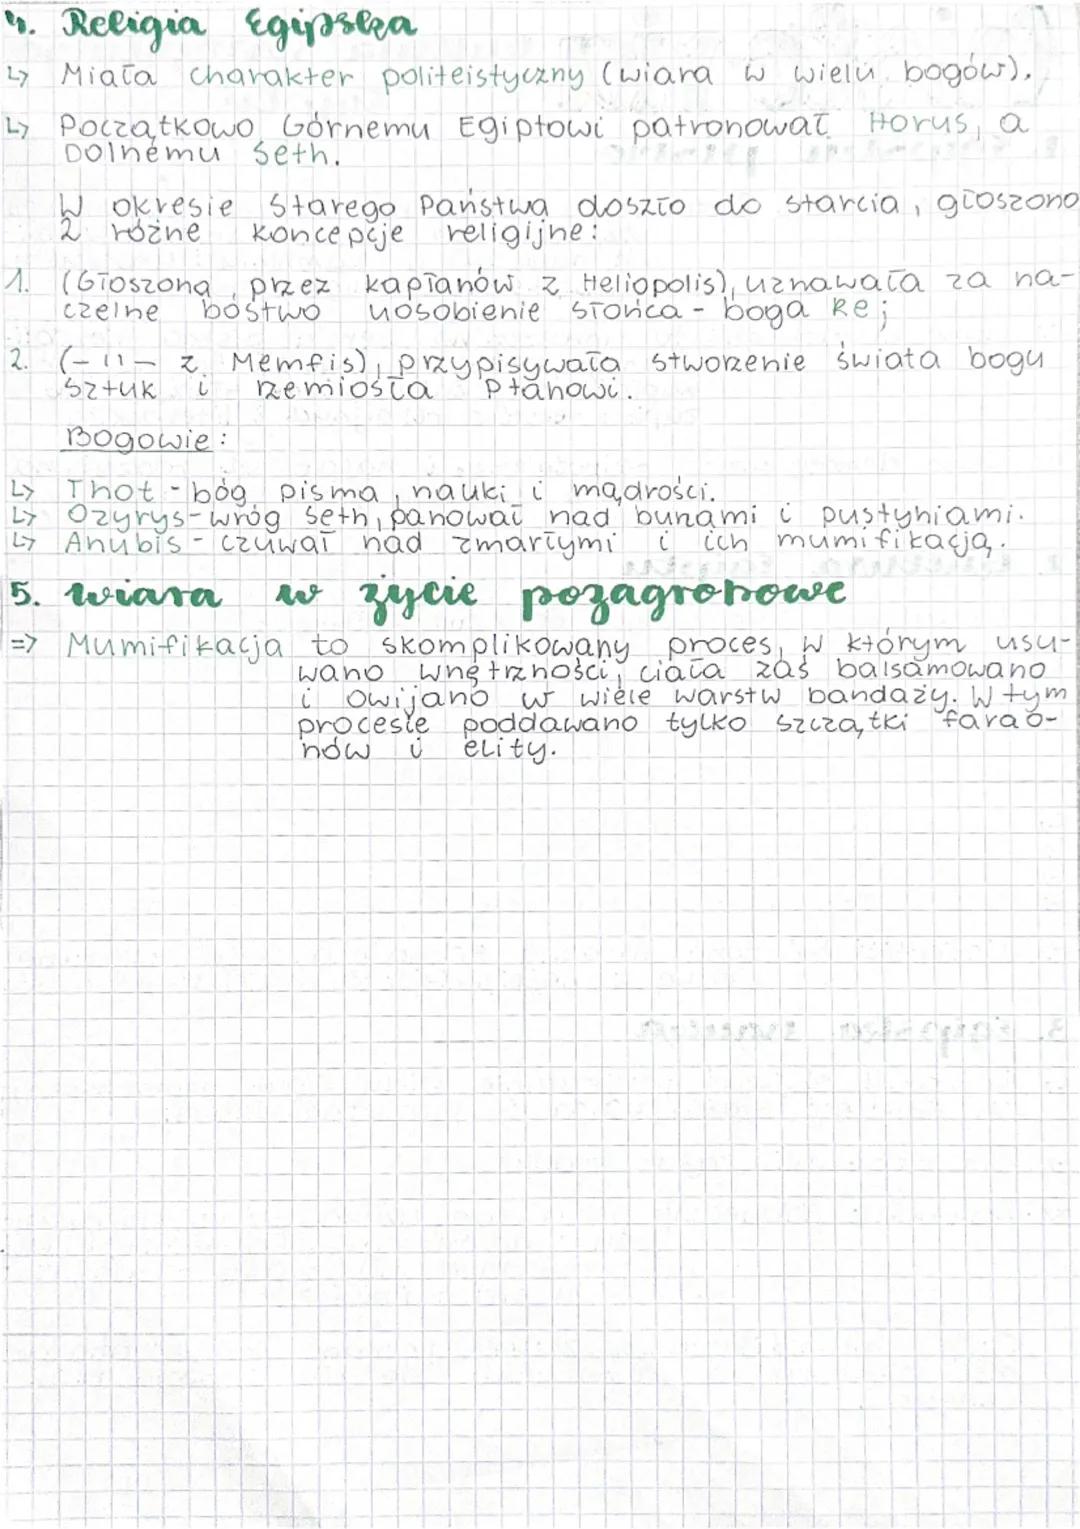 4. Religia Egipska
↳ Miała charakter politeistyczny (wiara w wielu bogów).
↳ Początkowo Górnemu Egiptowi patronował Horus, a
Dolnemu Seth.
W okresie Starego Państwa doszło do starcia, głoszono
2 różne koncepcje religijne:
1. (Głoszona przez kapłanów z Heliopolis), uznawała za na-
czelne bóstwo uosobienie słońca - boga Re;
2. (-11- z Memfis), przypisywała stworzenie świata bogu
sztuk i rzemiosła Ptahowi.
Bogowie:
↳ Thot - bóg pisma, nauki i mądrości.
↳ Ozyrys - wróg Seth, panował nad burzami i pustyniami.
↳ Anubis - czuwał nad zmarłymi i ich mumifikacją.
5. wiara w życie pozagrobowe
=> Mumifikacja to skomplikowany proces, w którym usu-
wano wnętrzności, ciała zaś balsamowano
i owijano w wiele warstw bandaży. W tym
procesie poddawano tylko szczątki farao-
nów i elity.